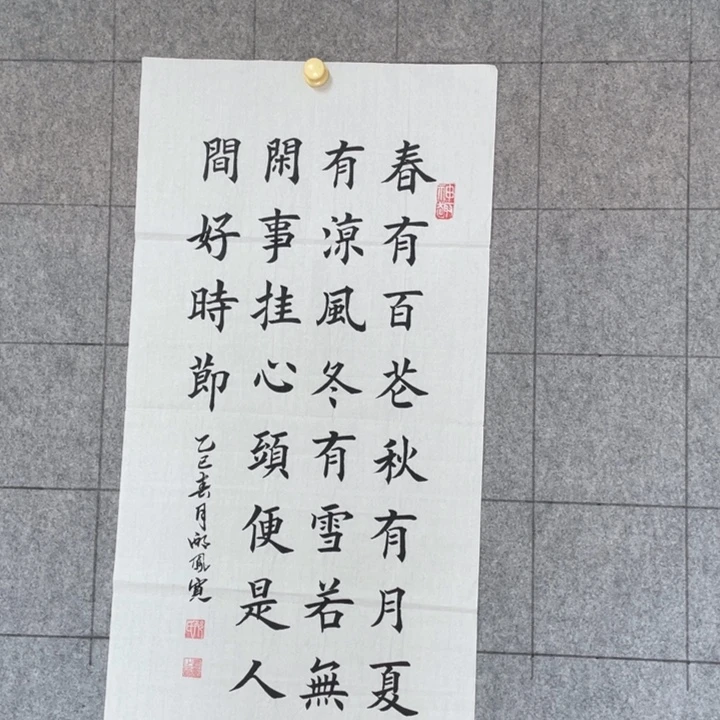 春有百花秋有月夏
有涼風冬有雪若無
閑事挂心頭便是人
間好時節
乙巳春月